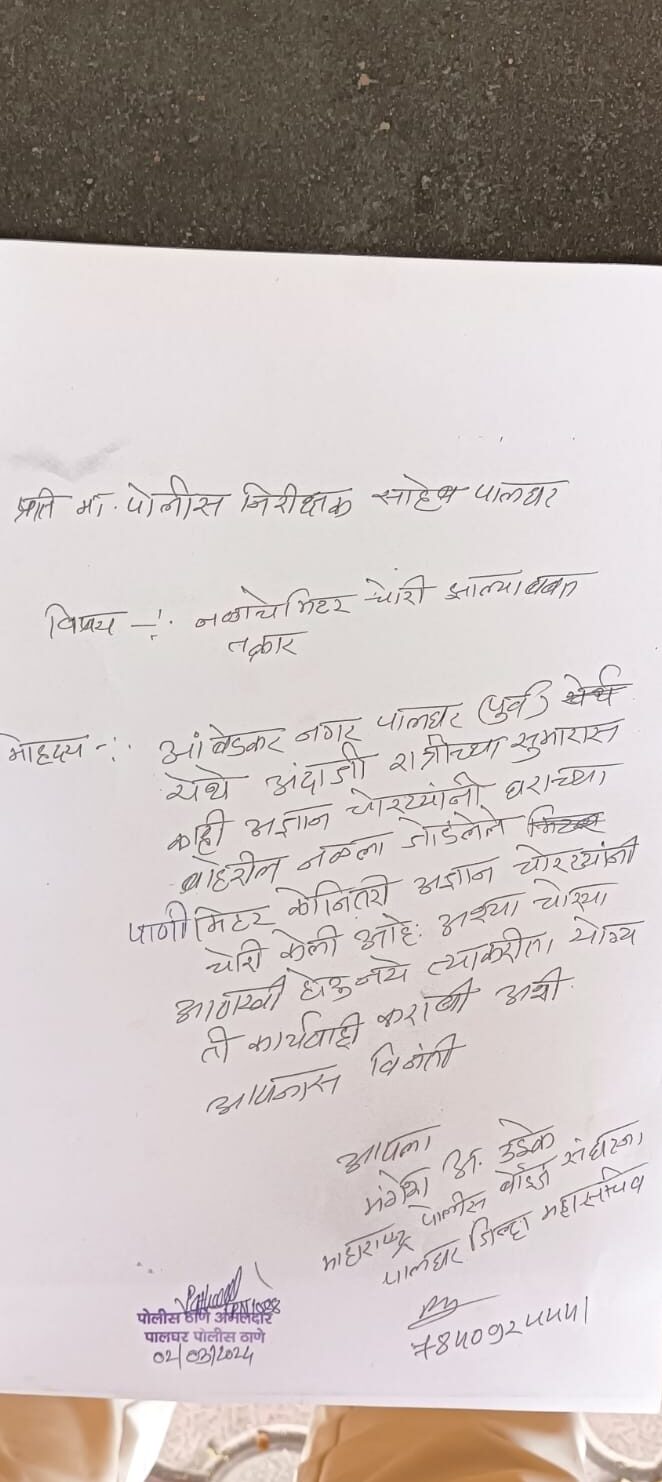 प्रति मा. पोलीस निरीक्षक साहेब पालघर
विषय -: नळाचे मिटर चोरी झाल्याबाबत
तक्रार
मोहदय -: आंबेडकर नगर पालघर (पुर्व) येथे
येथे अंदाजी रात्रीच्या सुमारास
काही अज्ञान चोरट्यांनी घराच्या
बाहेरील नळला जोडलेले मिटर
पाणी मिटर कोनितरी अज्ञान चोरट्यांनी
चोरी केली आहे. अश्या चोऱ्या
आणखी होऊ नये त्याकरीता योग्य
ती कार्यवाही करावी अशी
आपनास विनंती
आपला
मंगेश अ. उईके
माहाराष्ट्र पोलीस बॉईज संघटना
पालघर जिल्हा महासचिव
7840924441
पोलीस ठाणे अंमलदार
पालघर पोलीस ठाणे
02/03/2024